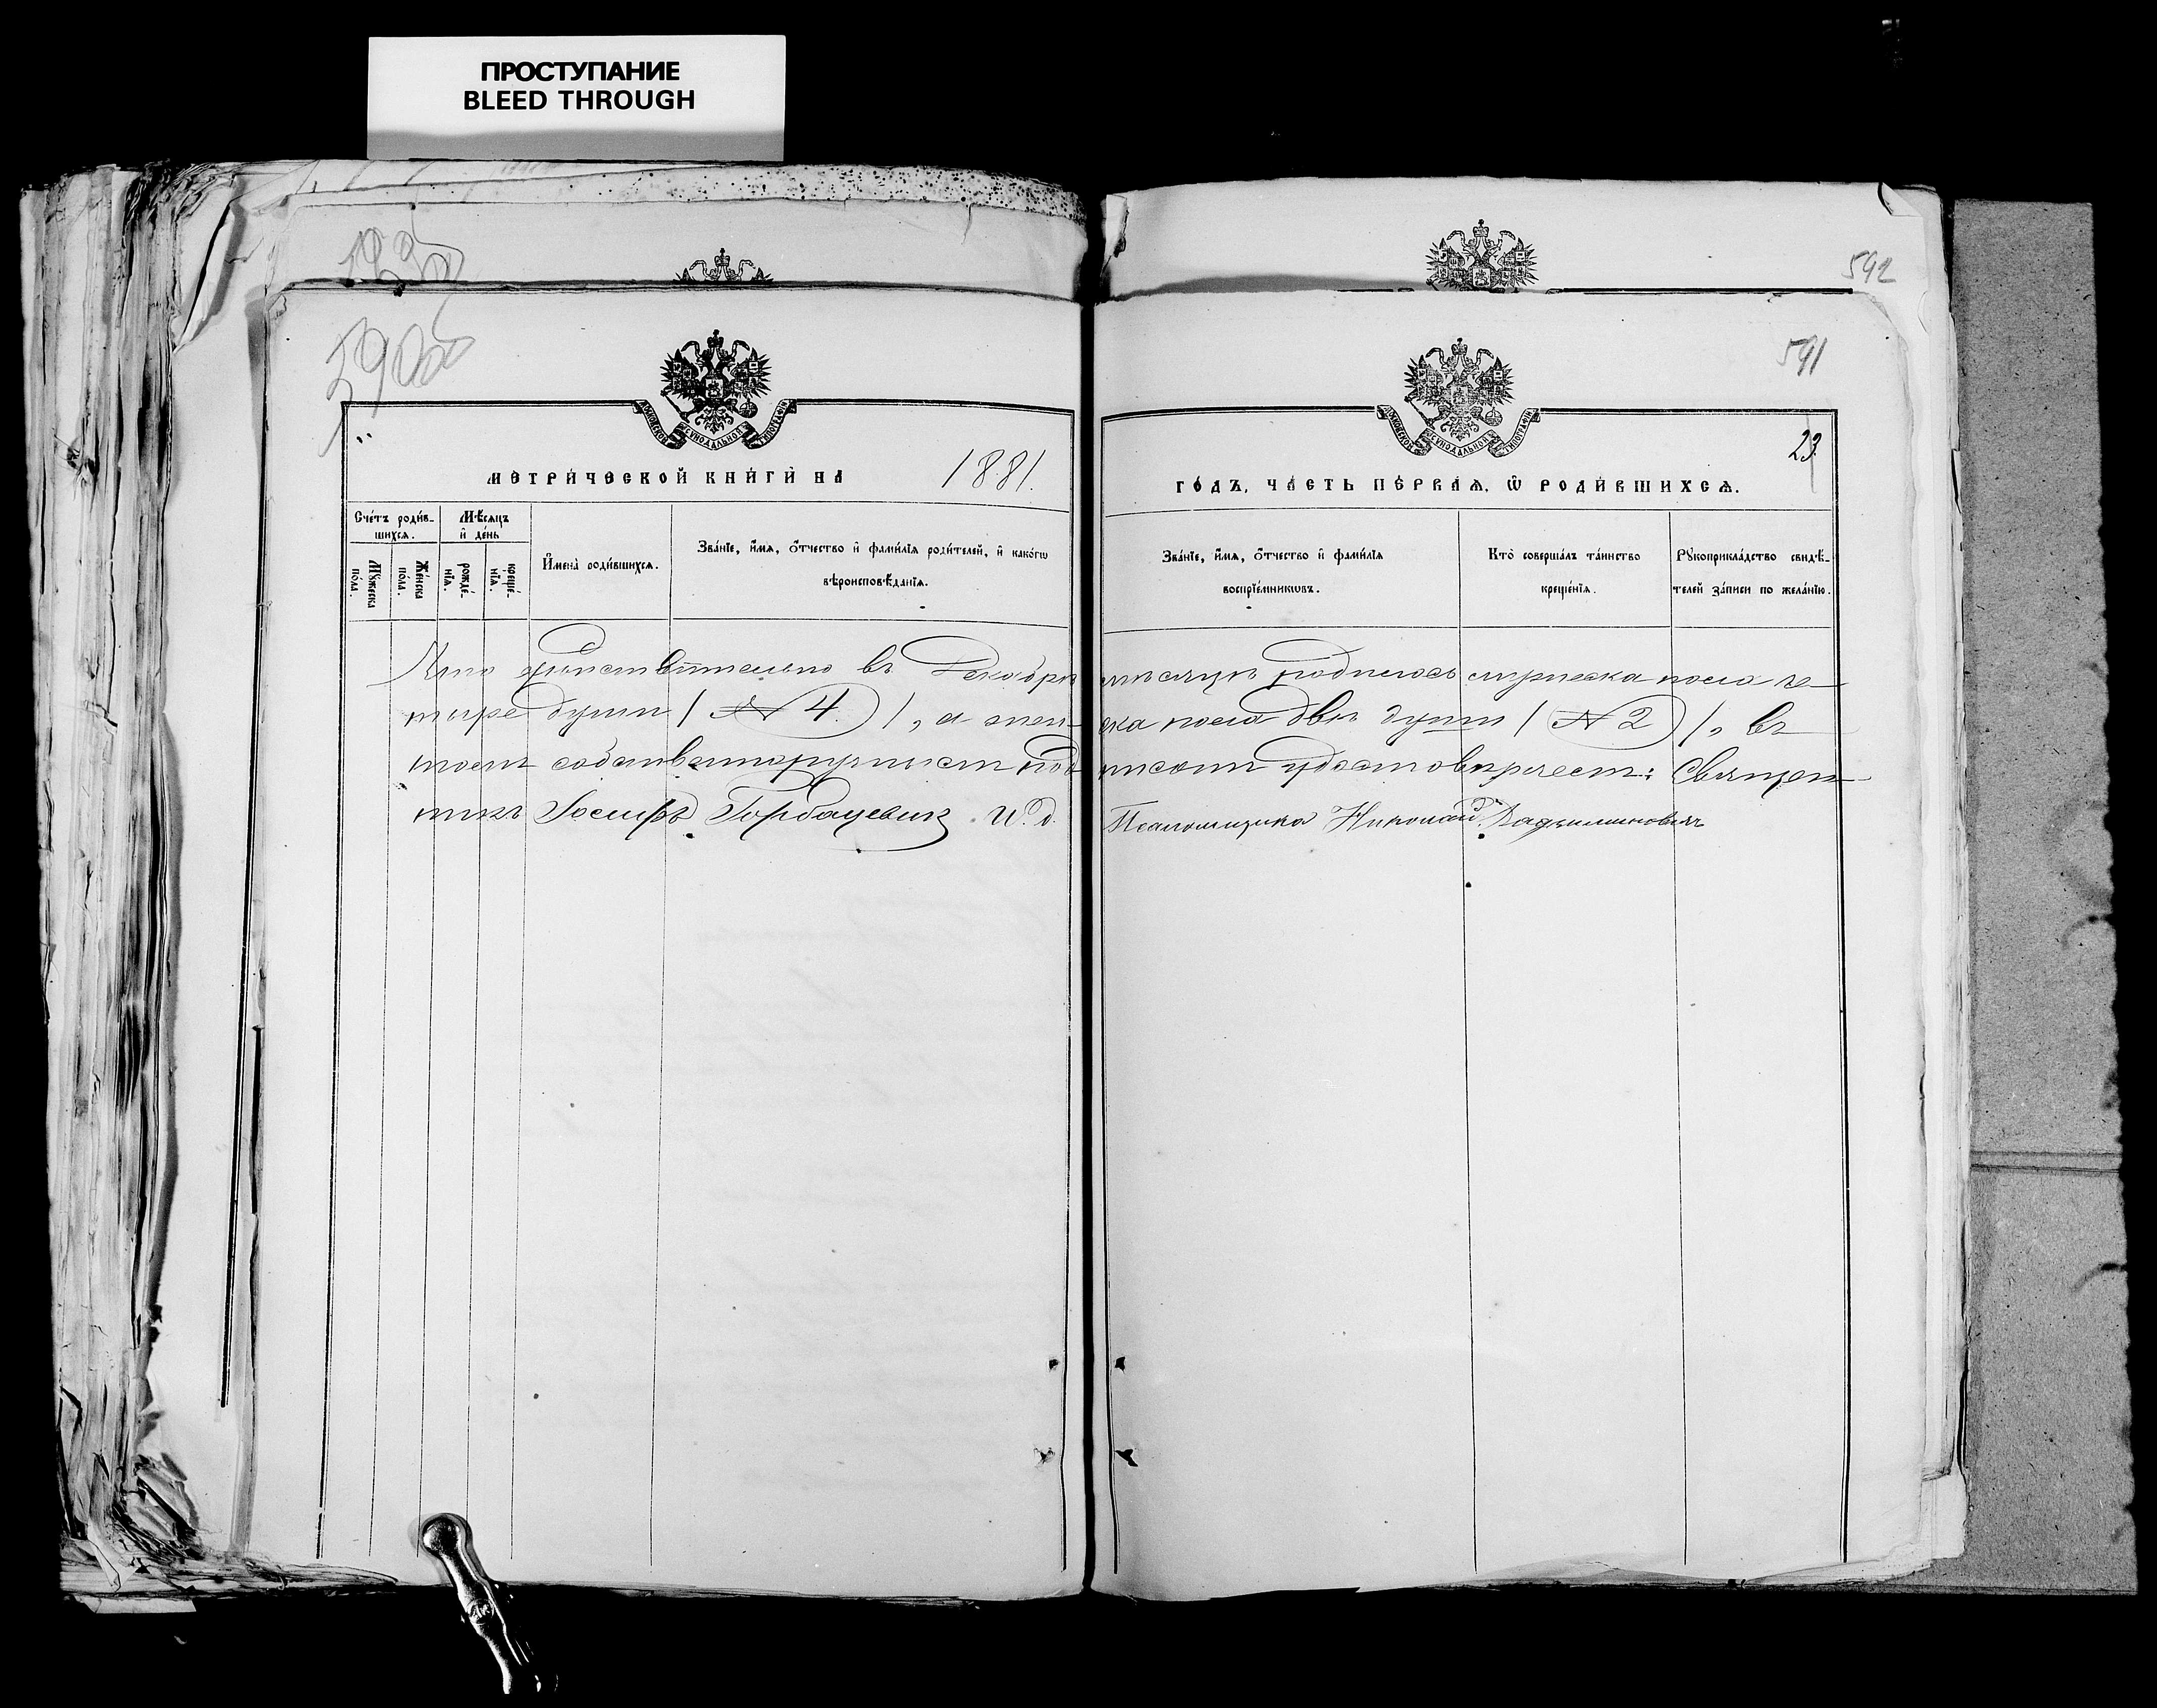 ПРОСТУПАНИЕ
BLEED THROUGH
592
591
23.
МОСКОВСКОЙ СѴНОДАЛЬНОЙ ТИПОГРАФІИ
МОСКОВСКОЙ СѴНОДАЛЬНОЙ ТИПОГРАФІИ
МЕТРИ́ЧЕСКОЙ КНИ́ГИ НА 1881.
ГО́ДЪ, ЧА́СТЬ ПЕ́РВАЯ, Ѡ РОДИ́ВШИХСЯ.
Сче́тъ роди́в-
шихся.
Мꙋ́жеска
по́ла.
Же́нска
по́ла.
Мѣ́сяцъ
и҆ де́нь
рожде́-
нїя.
креще́-
нїя.
И҆мена̀ роди́вшихся.
Зва́нїе, и҆́мя, ѻ҆́тчество и҆ фами́лїя роди́телей, и҆ како́гѡ
вѣроисповѣ́данїя.
Зва́нїе, и҆́мя, ѻ҆́тчество и҆ фами́лїя
воспрїе́мникѡвъ.
Кто̀ соверша́лъ та́инство
креще́нїя.
Рꙋкоприкла́дство свидѣ́-
телей за́писи по жела́нїю.
Что дѣйствительно въ Декабрѣ мѣсяцѣ родилось мужеска пола че-
тыре души (№ 4.), а жен- ска пола двѣ души (№ 2), въ
томъ собственноручнымъ под- писомъ удостовѣряемъ: Священ-
никъ Іосифъ Горбацевичъ И. д. Псаломщика Николай